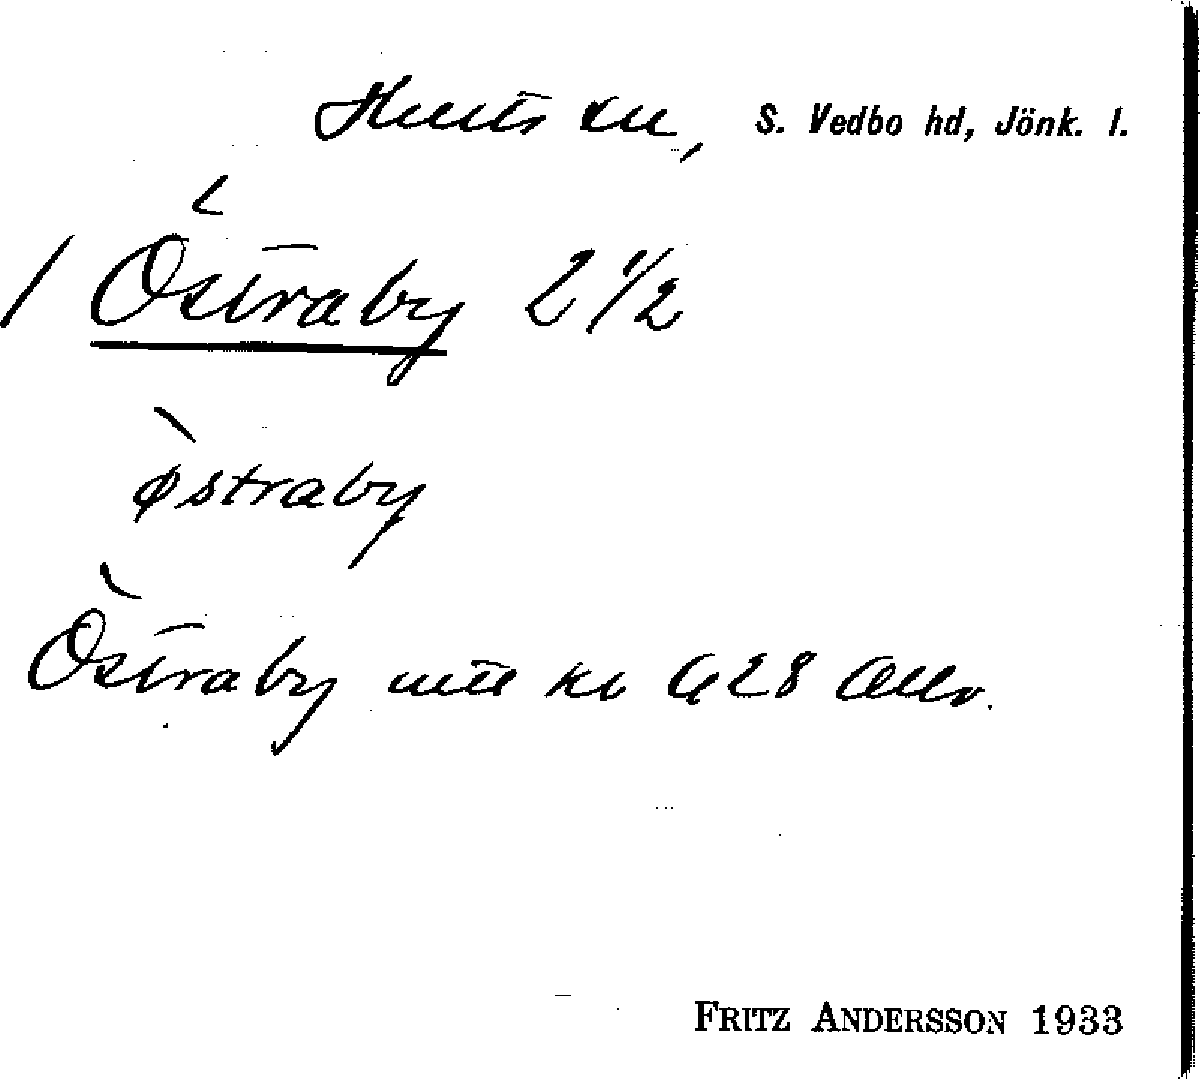 Hults sn, S. Vedbo hd, Jönk. l.
/ Östraby 2 1/2
østraby
Östraby 628
FRITZ ANDERSSON 1933